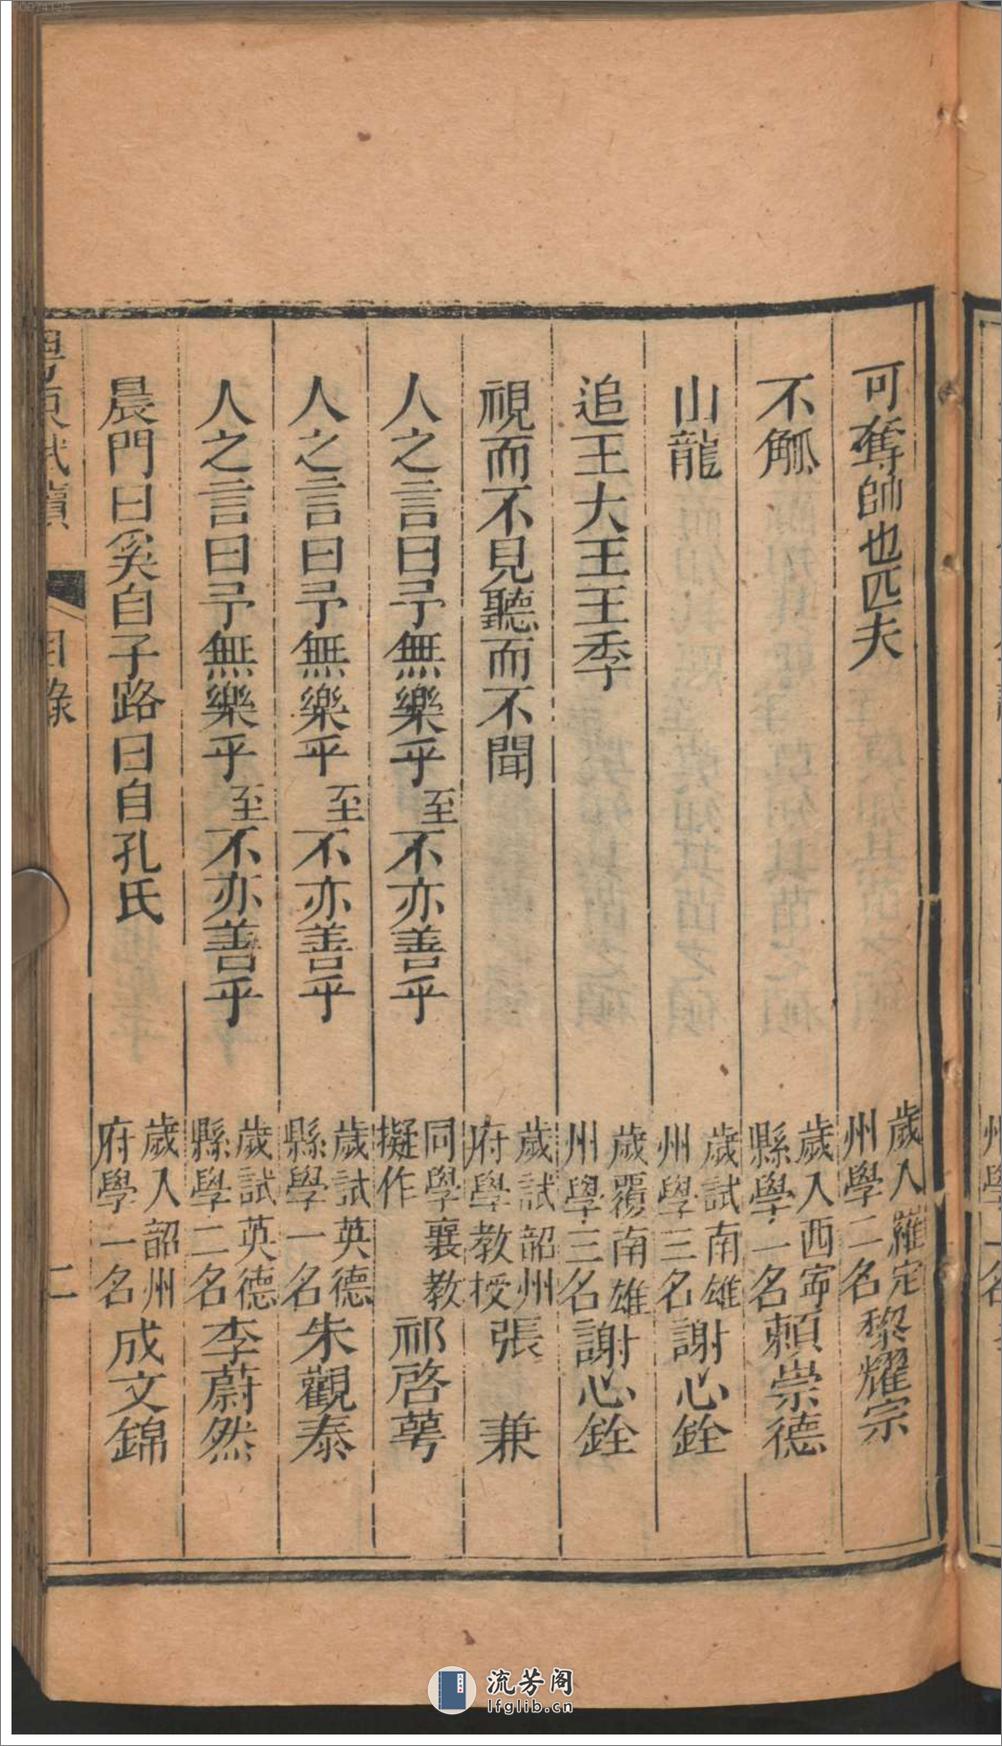 可奪帥也匹夫 歲入羅定州學二名 黎耀宗
不觚 歲入西寧縣學一名 賴崇德
山龍 歲試南雄州學三名 謝心銓
追王大王王季 歲覆南雄州學三名 謝心銓
視而不見聽而不聞 歲試韶州府學教授 張兼
人之言曰予無樂乎至不亦善乎 同學襄教擬作 祁啓萼
人之言曰予無樂乎至不亦善乎 歲試英德縣學一名 朱觀泰
人之言曰予無樂乎至不亦善乎 歲試英德縣學二名 李蔚然
晨門曰奚自子路曰自孔氏 歲入韶州府學一名 成文錦
目錄 二
流芳阁
lfglib.cn